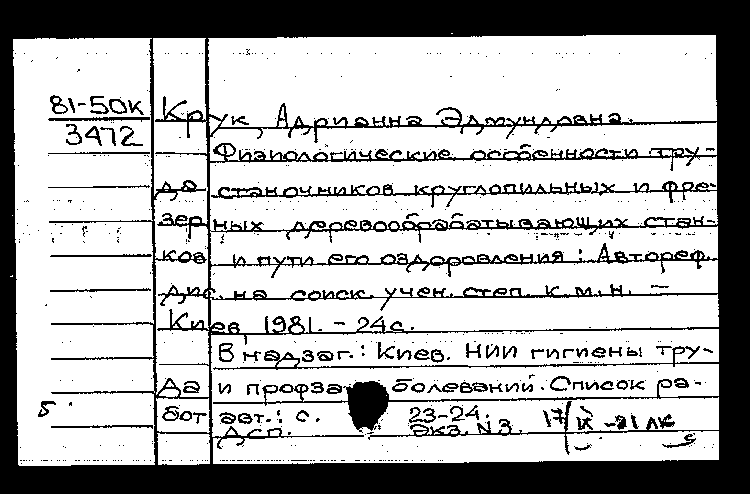 81-50к
3472
Крук, Адрианна Эдмундовна.
Физиологические особенности тру-
да станочников круглопильных и фре-
зерных деревообрабатывающих стан-
ков и пути его оздоровления : Автореф.
дис. на соиск. учен. степ. к.м.н. –
Киев, 1981. – 24 с.
В надзаг.: Киев. НИИ гигиены тру-
да и профзаболеваний. Список ра-
бот авт.: с. 23-24.
Дсп. Экз. N 3.